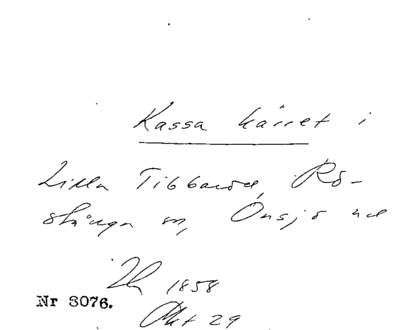 Kassa kärret i
Lilla Tibbaröd, Rö-
stånga sn, Önsjö hd
1858
Nr 3076.
Okt 29